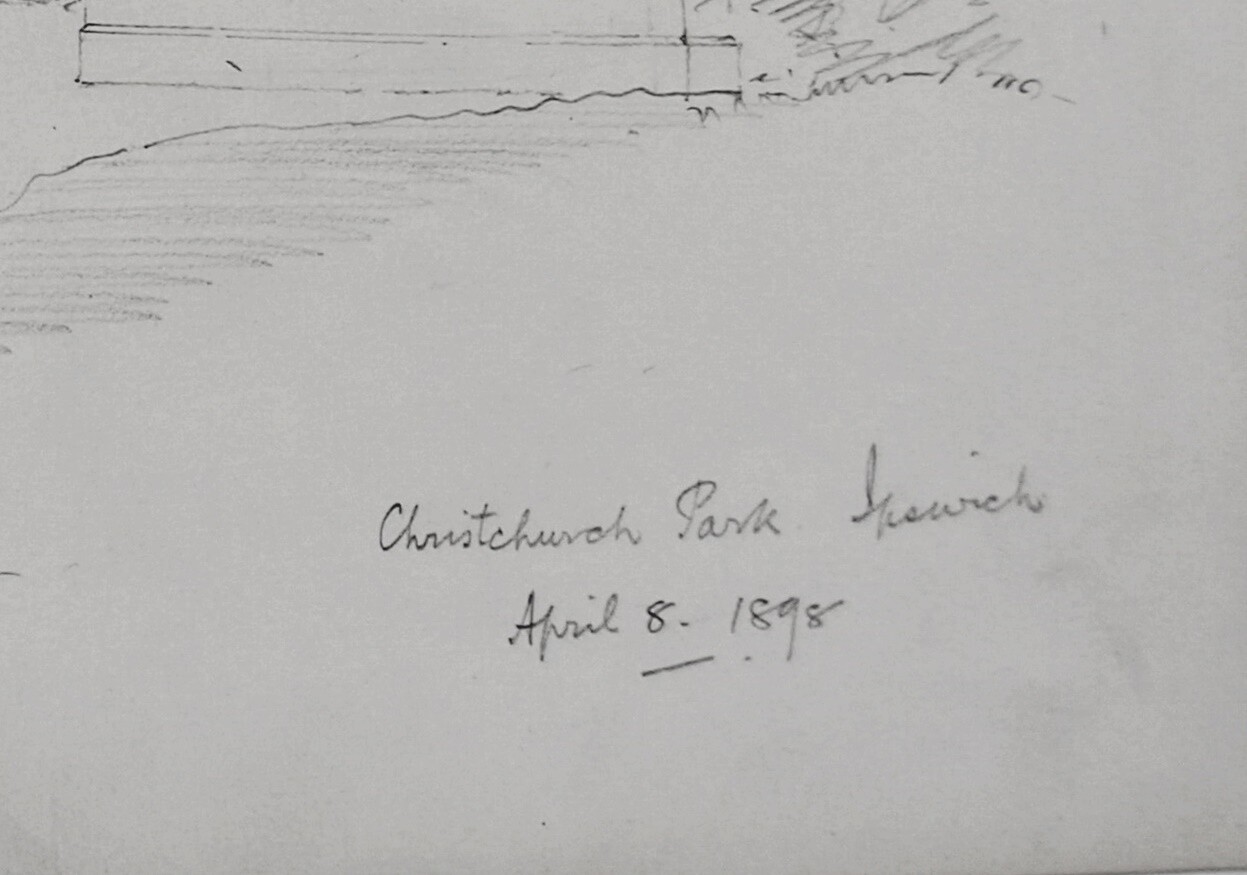 Christchurch Park Ipswich
April 8. 1898